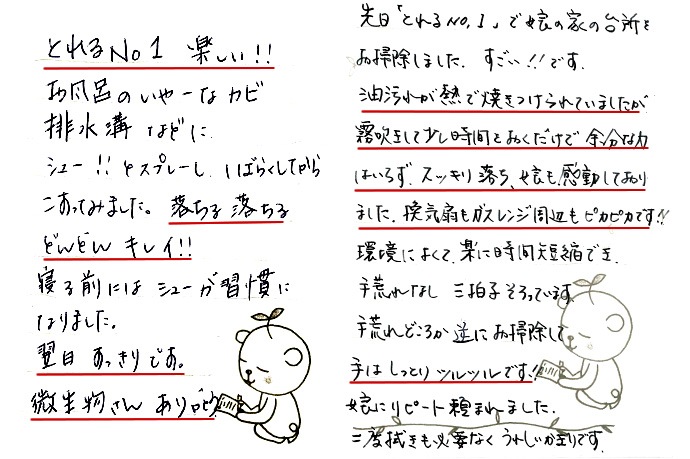 とれるNo1 楽しい!!
お風呂のいやーなカビ
排水溝などに
シュー!!とスプレーし、しばらくしてから
こすってみました。落ちる落ちる
どんどんキレイ!!
寝る前にはシューが習慣に
なりました。
翌日 すっきりです。
微生物さん ありがとう
先日「とれるNO,1」で娘の家の台所を
お掃除しました. すごい!!です.
油汚れが熱で焼きつけられていましたが
霧吹きして少し時間をおくだけで余分な力
はいらず. スッキリ落ち、娘も感動しており
ました. 換気扇もガスレンジ周辺もピカピカです!!
環境によくて. 楽に時間短縮でき.
手荒れなし 三拍子そろっています
手荒れどころか 逆にお掃除して
手はしっとりツルツルです!!
娘にリピート頼まれました.
二度拭きも必要なくうれしいかぎりです.